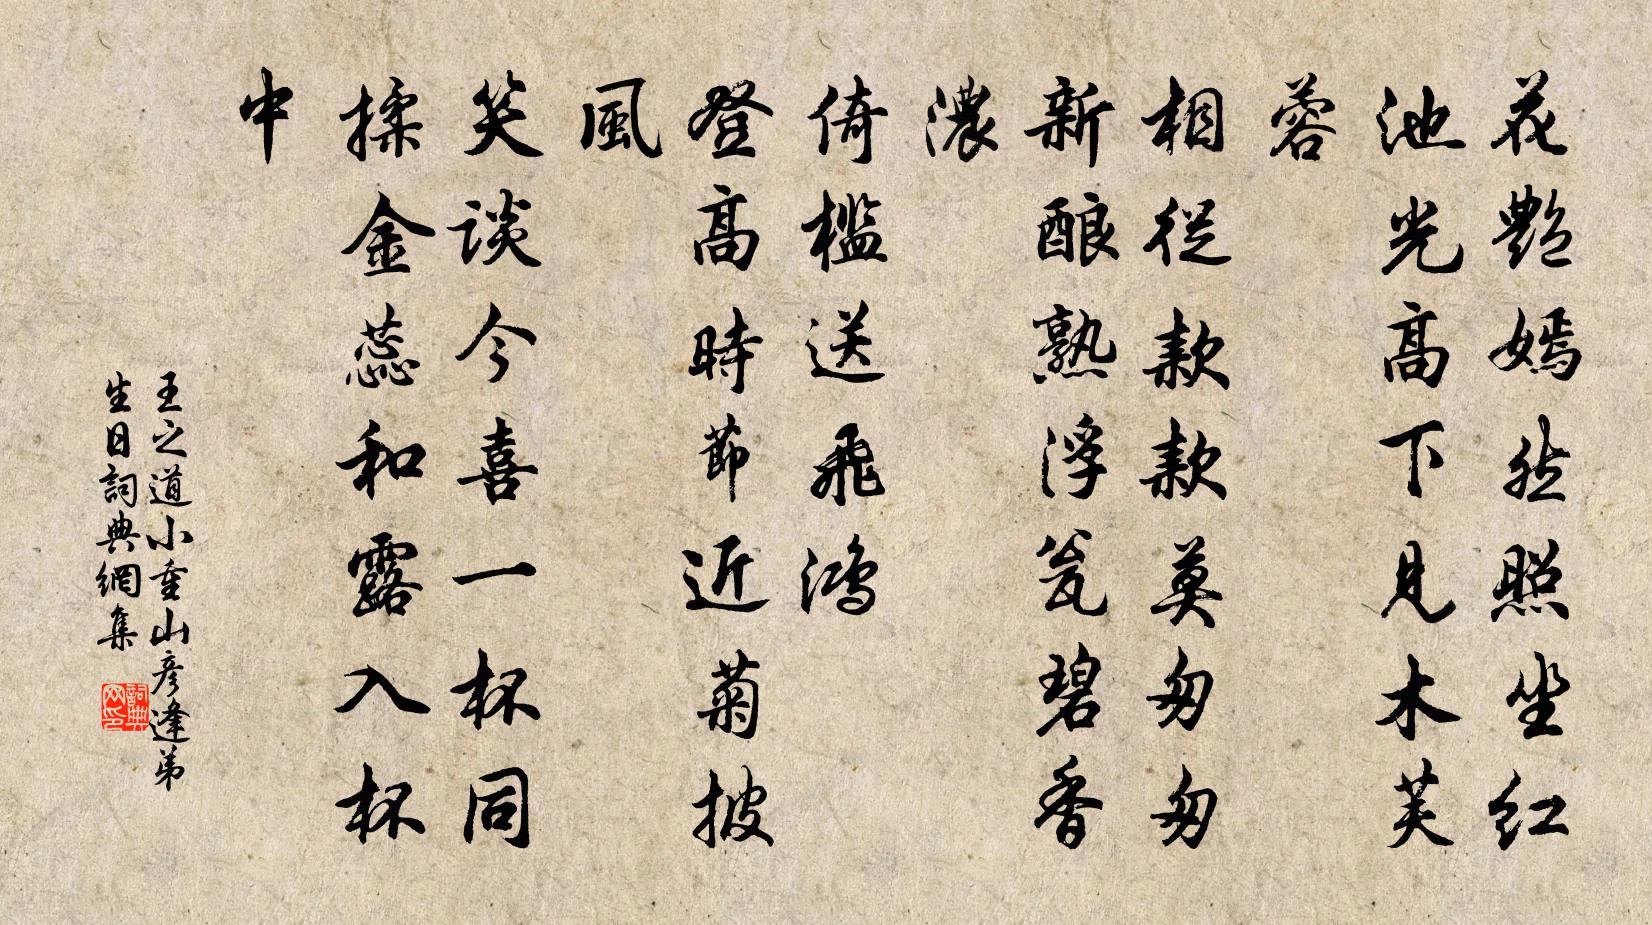 花艷嫣然照坐红
池光高下見木芙
蓉
相從款款莫匆匆
新酿熟浮瓮碧香
濃
倚檻送飛鸿
登高時節近菊披
風
笑谈今喜一杯同
揉金蕊和露入杯
中
王之道小重山彦逢弟
生日詞典網集
詞典
网印